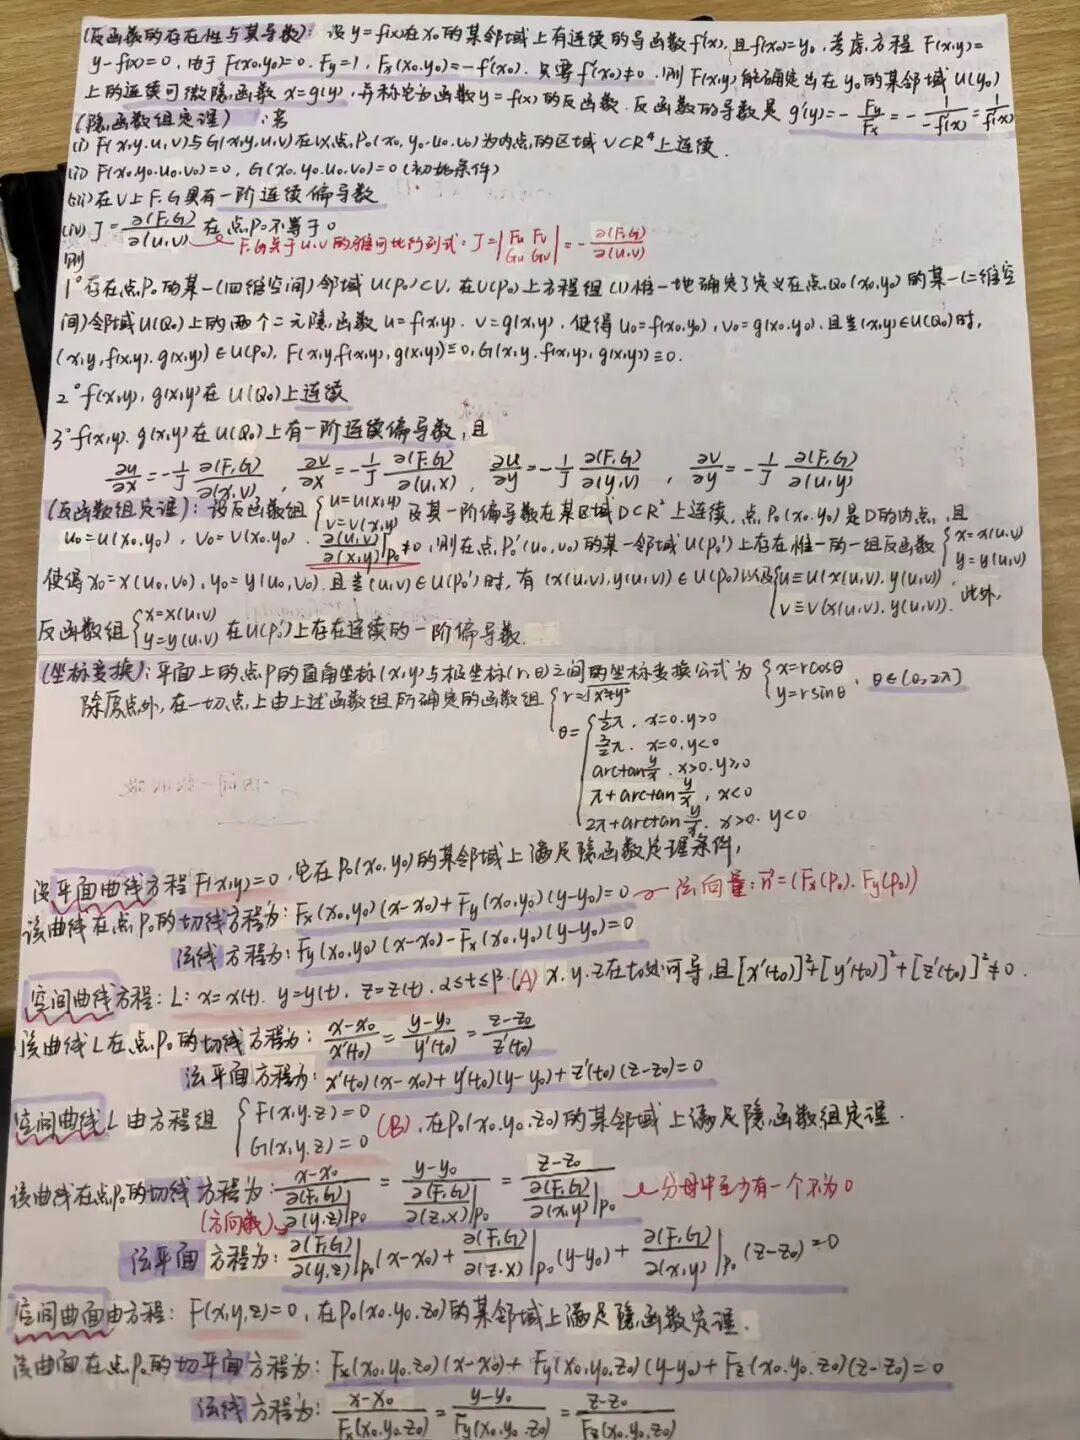 (反函数的存在性与其导数)：设 y=f(x)在 x₀ 的某邻域上有连续的导函数f'(x), 且f(x₀)=y₀, 考虑方程 F(x,y)=
y-f(x)=0, 由于 F(x₀,y₀)=0, Fy=1, Fx(x₀,y₀)=-f'(x₀). 只要f'(x₀)≠0, 则 F(x,y)能确定出在 y₀的某邻域 U(y₀)
上的连续可微隐函数 x=g(y), 并称它为函数y=f(x)的反函数. 反函数的导数是 g'(y)=-Fy/Fx=-1/-f'(x)=1/f'(x)
(隐函数组定理) 若
(i) F(x,y,u,v)与G(x,y,u,v)在以点P₀(x₀,y₀,u₀,v₀)为内点的区域 V⊂R⁴上连续.
(ii) F(x₀,y₀,u₀,v₀)=0, G(x₀,y₀,u₀,v₀)=0(初始条件)
(iii)在V上F,G具有一阶连续偏导数
(iv) J=∂(F,G)/∂(u,v) 在点P₀不等于0 F,G关于u,v的雅可比行列式: J=|Fu Fv; Gu Gv|=-∂(F,G)/∂(u,v)
则
1°存在点P₀的某一(四维空间)邻域 U(P₀)⊂V, 在U(P₀)上方程组(1)惟一地确定了定义在点Q₀(x₀,y₀)的某一(二维空
间)邻域U(Q₀)上的两个二元隐函数 u=f(x,y), v=g(x,y), 使得 u₀=f(x₀,y₀), v₀=g(x₀,y₀), 且当(x,y)∈U(Q₀)时,
(x,y,f(x,y),g(x,y))∈U(P₀), F(x,y,f(x,y),g(x,y))≡0, G(x,y,f(x,y),g(x,y))≡0.
2°f(x,y), g(x,y)在 U(Q₀)上连续
3°f(x,y), g(x,y)在U(Q₀)上有一阶连续偏导数, 且
∂u/∂x=-1/J ∂(F,G)/∂(x,v), ∂v/∂x=-1/J ∂(F,G)/∂(u,x), ∂u/∂y=-1/J ∂(F,G)/∂(y,v), ∂v/∂y=-1/J ∂(F,G)/∂(u,y)
(反函数组定理)：设反函数组{u=u(x,y) v=v(x,y) 及其一阶偏导数在某区域D⊂R²上连续, 点P₀(x₀,y₀)是D的内点, 且
u₀=u(x₀,y₀), v₀=v(x₀,y₀), ∂(u,v)/∂(x,y)|P₀≠0, 则在点P₀'(u₀,v₀)的某一邻域U(P₀')上存在惟一的一组反函数{x=x(u,v) y=y(u,v)
使得x₀=x(u₀,v₀), y₀=y(u₀,v₀), 且当(u,v)∈U(P₀')时, 有(x(u,v),y(u,v))∈U(P₀)以及{u≡u(x(u,v),y(u,v)) v≡v(x(u,v),y(u,v)). 此外,
反函数组{x=x(u,v) y=y(u,v) 在U(P₀')上存在连续的一阶偏导数.
(坐标变换)：平面上的点P的直角坐标(x,y)与极坐标(r,θ)之间的坐标变换公式为{x=rcosθ y=rsinθ, θ∈[0,2π]
除原点外, 在一切点上由上述函数组所确定的函数组{r=√x²+y²
θ={½π, x=0,y>0
3/2π, x=0,y<0
arctan y/x, x>0,y≥0
π+arctan y/x, x<0
2π+arctan y/x, x>0, y<0
设平面曲线方程F(x,y)=0, 它在P₀(x₀,y₀)的某邻域上满足隐函数定理条件,
该曲线在点P₀的切线方程为: Fx(x₀,y₀)(x-x₀)+Fy(x₀,y₀)(y-y₀)=0 法向量: n=(Fx(P₀), Fy(P₀))
法线方程为: Fy(x₀,y₀)(x-x₀)-Fx(x₀,y₀)(y-y₀)=0
空间曲线方程: L: x=x(t), y=y(t), z=z(t), α≤t≤β (A) x,y,z在t₀处可导, 且[x'(t₀)]²+[y'(t₀)]²+[z'(t₀)]²≠0.
该曲线L在点P₀的切线方程为: x-x₀/x'(t₀)=y-y₀/y'(t₀)=z-z₀/z'(t₀)
法平面方程为: x'(t₀)(x-x₀)+y'(t₀)(y-y₀)+z'(t₀)(z-z₀)=0
空间曲线L由方程组{F(x,y,z)=0 G(x,y,z)=0 (B), 在P₀(x₀,y₀,z₀)的某邻域上满足隐函数组定理.
该曲线在点P₀的切线方程为: x-x₀/∂(F,G)/∂(y,z)|P₀=y-y₀/∂(F,G)/∂(z,x)|P₀=z-z₀/∂(F,G)/∂(x,y)|P₀ 分母中至少有一个不为0
(方向数)
法平面方程为: ∂(F,G)/∂(y,z)|P₀(x-x₀)+∂(F,G)/∂(z,x)|P₀(y-y₀)+∂(F,G)/∂(x,y)|P₀(z-z₀)=0
空间曲面由方程: F(x,y,z)=0, 在P₀(x₀,y₀,z₀)的某邻域上满足隐函数定理.
该曲面在点P₀的切平面方程为: Fx(x₀,y₀,z₀)(x-x₀)+Fy(x₀,y₀,z₀)(y-y₀)+Fz(x₀,y₀,z₀)(z-z₀)=0
法线方程为: x-x₀/Fx(x₀,y₀,z₀)=y-y₀/Fy(x₀,y₀,z₀)=z-z₀/Fz(x₀,y₀,z₀)